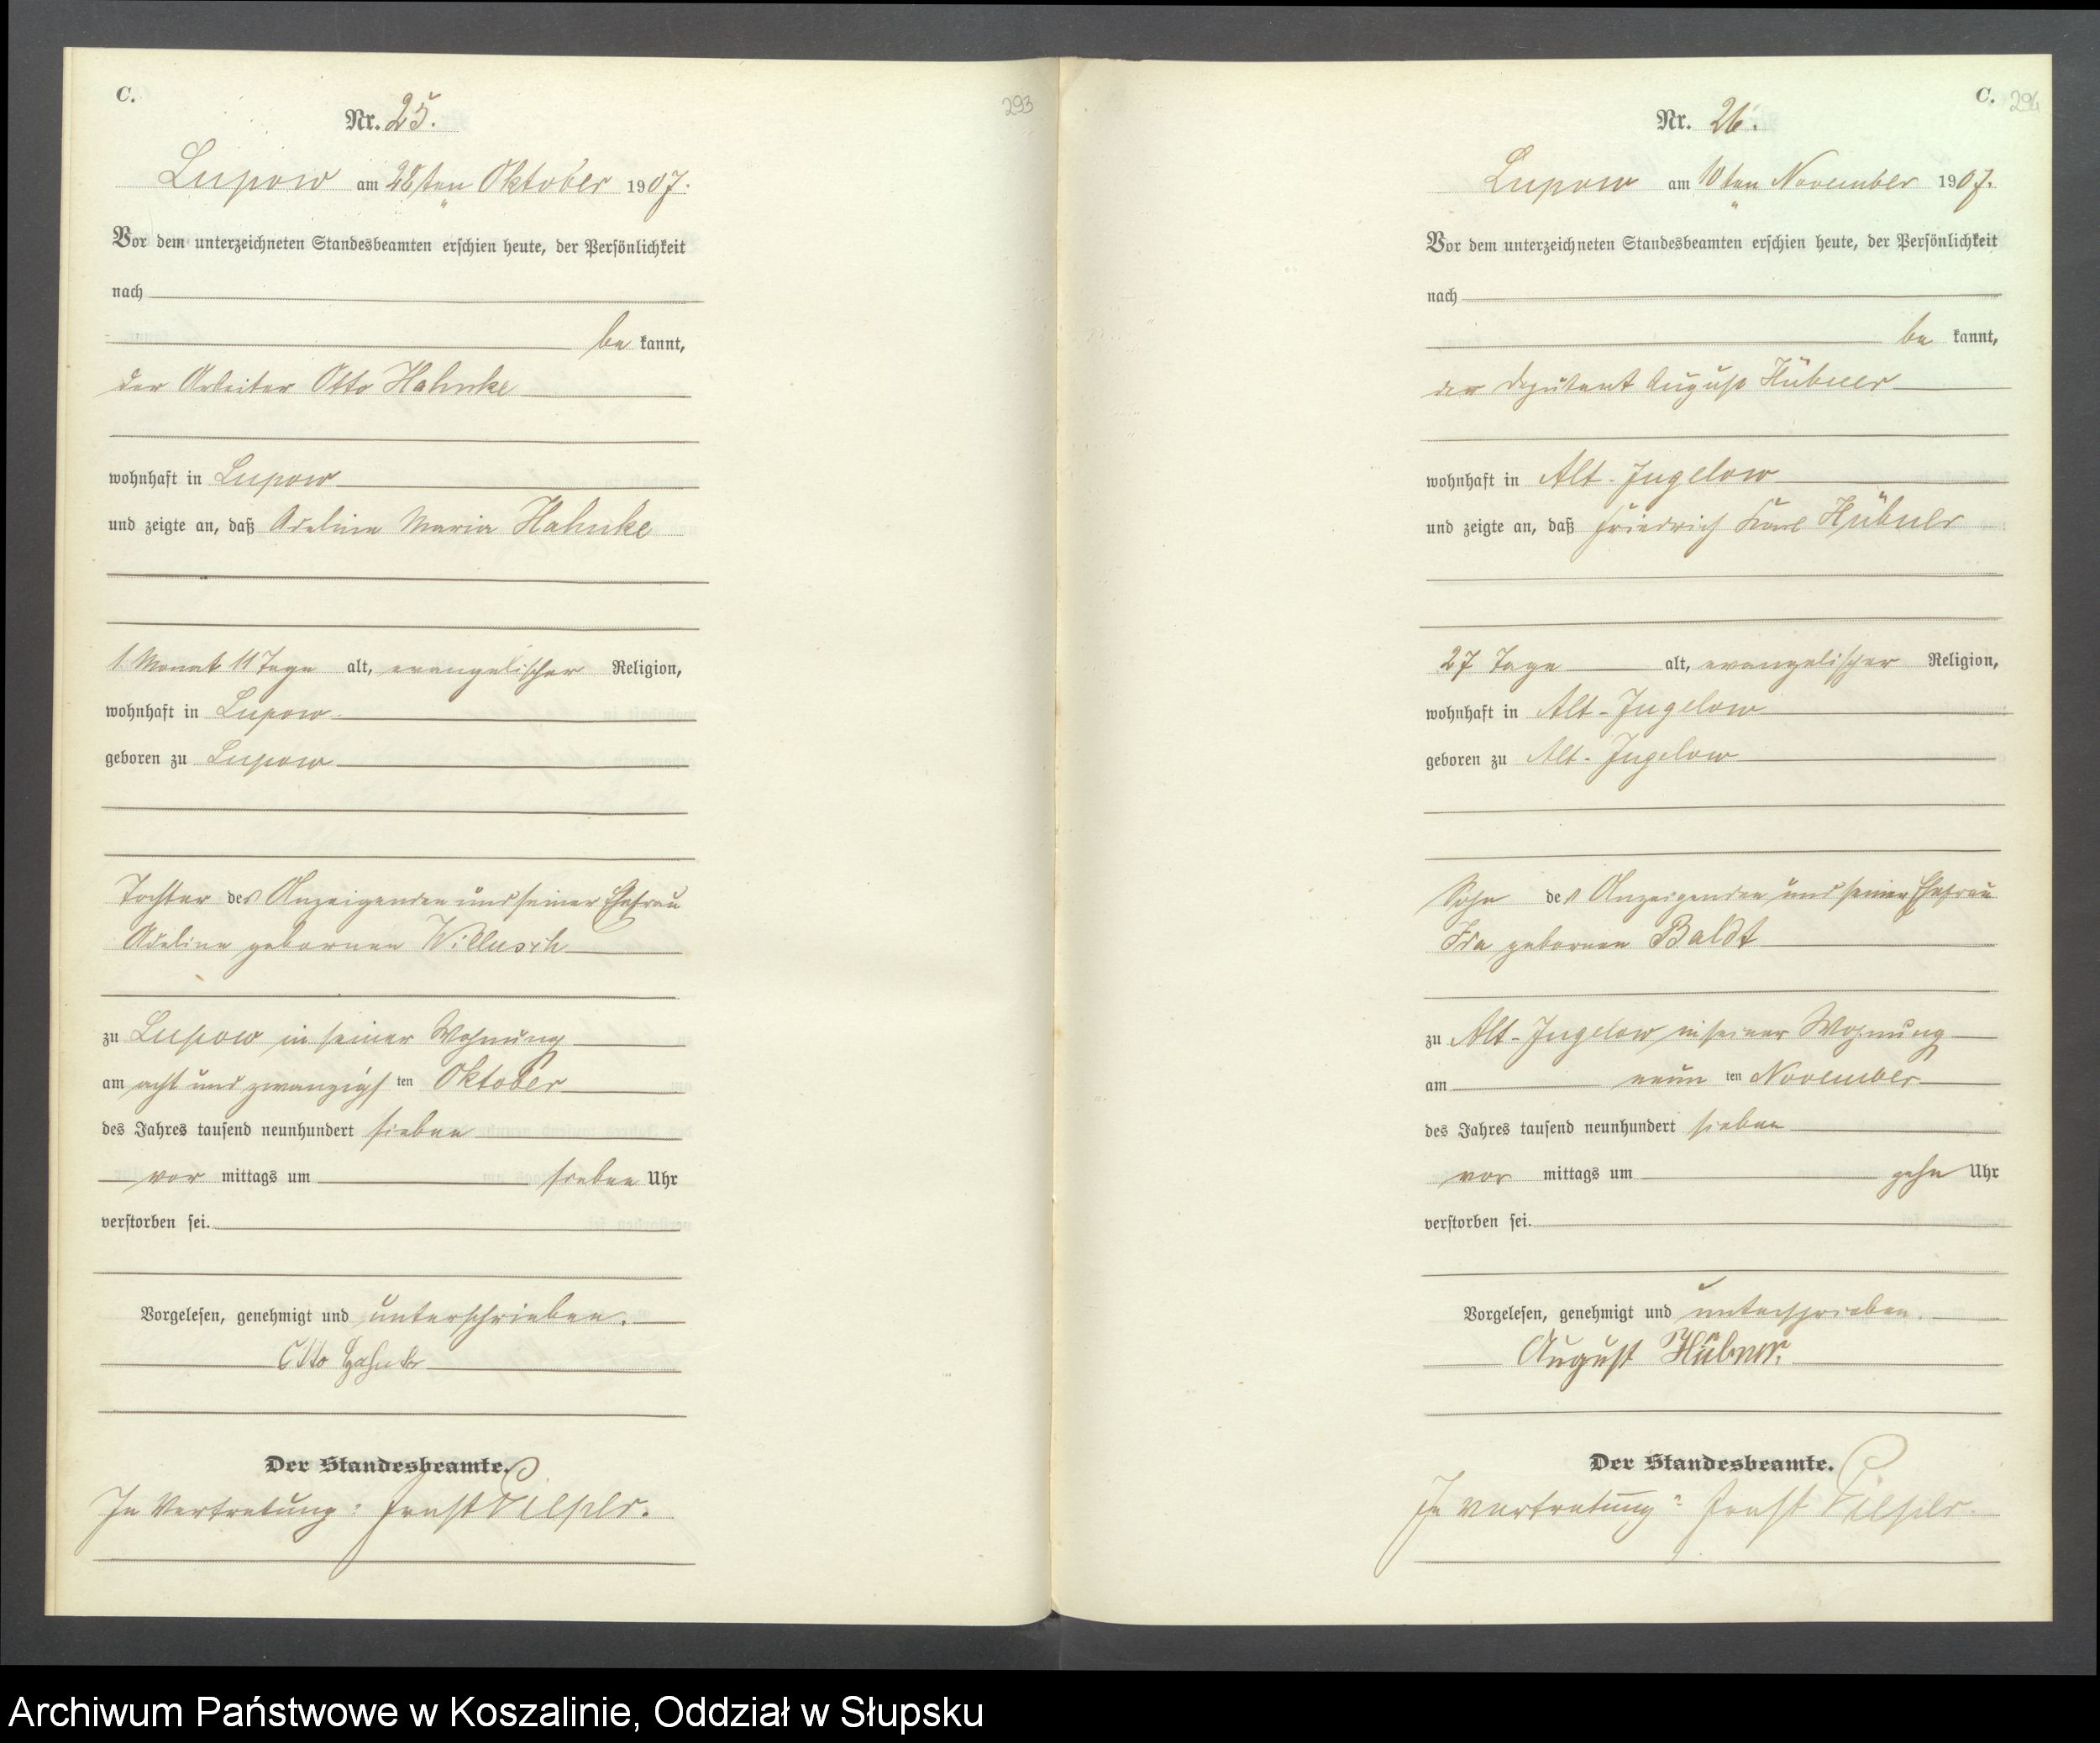 C.
293
Nr. 25.
Lupow am 28ten Oktober 1907.
Vor dem unterzeichneten Standesbeamten erschien heute, der Persönlichkeit
nach
be kannt,
der Arbeiter Otto Hahnke
wohnhaft in Lupow
und zeigte an, daß Adeline Maria Hahnke
1 Monat 11 Tage alt, evangelischer Religion,
wohnhaft in Lupow
geboren zu Lupow
Tochter des Anzeigenden und seiner Ehefrau
Adeline geborenen Willusch
zu Lupow in seiner Wohnung
am acht und zwanzigs ten Oktober
des Jahres tausend neunhundert sieben
vor mittags um sieben Uhr
verstorben sei.
Vorgelesen, genehmigt und unterschrieben.
Otto Hahnke
Der Standesbeamte.
In Vertretung: Ernst
C. 294
Nr. 26.
Lupow am 10ten November 1907.
Vor dem unterzeichneten Standesbeamten erschien heute, der Persönlichkeit
nach
be kannt,
der Deputant August Hübner
wohnhaft in Alt-Jugelow
und zeigte an, daß Friedrich Karl Hübner
27 Tage alt, evangelischer Religion,
wohnhaft in Alt-Jugelow
geboren zu Alt-Jugelow
Sohn des Anzeigenden und seiner Ehefrau
Ida geborenen Baldt
zu Alt-Jugelow in seiner Wohnung
am neun ten November
des Jahres tausend neunhundert sieben
vor mittags um zehn Uhr
verstorben sei.
Vorgelesen, genehmigt und unterschrieben.
August Hübner.
Der Standesbeamte.
In Vertretung: Ernst
Archiwum Państwowe w Koszalinie, Oddział w Słupsku